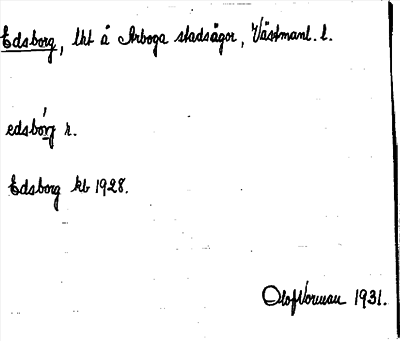 Edsborg, lht å Arboga stadsägor, Västmanl. l.
edsbórj r.
Edsborg kb 1928.
Olof Norman 1931.